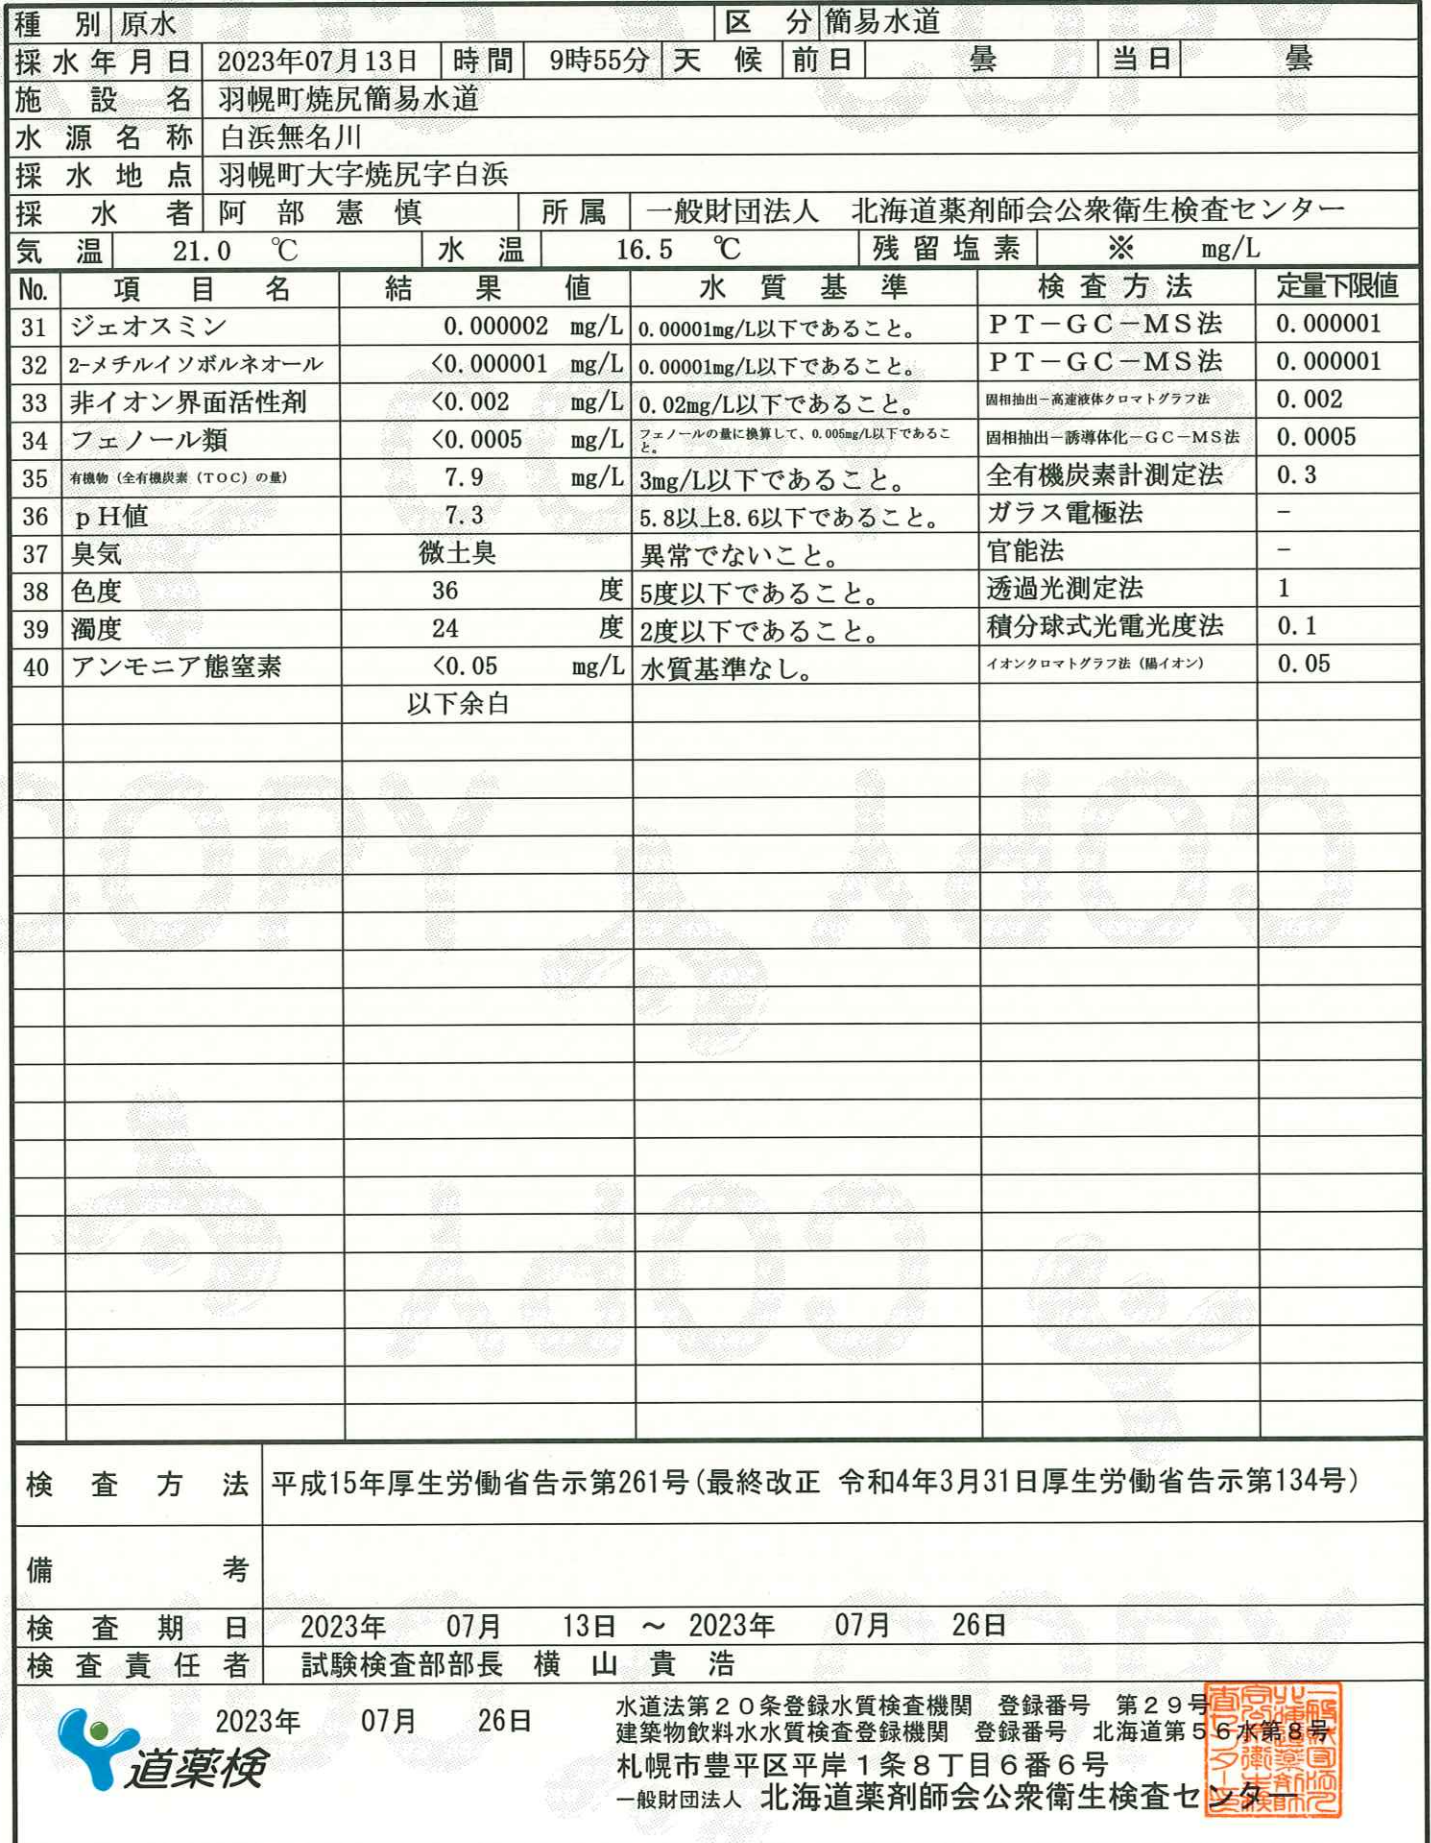 種 別 原水 区 分 簡易水道
採水年月日 2023年07月13日 時間 9時55分 天 候 前日 曇 当日 曇
施 設 名 羽幌町焼尻簡易水道
水 源 名 称 白浜無名川
採 水 地 点 羽幌町大字焼尻字白浜
採 水 者 阿 部 憲 慎 所属 一般財団法人 北海道薬剤師会公衆衛生検査センター
気 温 21.0 ℃ 水 温 16.5 ℃ 残留塩素 ※ mg/L
No. 項 目 名 結 果 値 水 質 基 準 検査方法 定量下限値
31 ジェオスミン 0.000002 mg/L 0.00001mg/L以下であること。 PT－GC－MS法 0.000001
32 2-メチルイソボルネオール <0.000001 mg/L 0.00001mg/L以下であること。 PT－GC－MS法 0.000001
33 非イオン界面活性剤 <0.002 mg/L 0.02mg/L以下であること。 固相抽出－高速液体クロマトグラフ法 0.002
34 フェノール類 <0.0005 mg/L フェノールの量に換算して、0.005mg/L以下であること。 固相抽出－誘導体化－GC－MS法 0.0005
35 有機物（全有機炭素（TOC）の量） 7.9 mg/L 3mg/L以下であること。 全有機炭素計測定法 0.3
36 pH値 7.3 5.8以上8.6以下であること。 ガラス電極法 －
37 臭気 微土臭 異常でないこと。 官能法 －
38 色度 36 度 5度以下であること。 透過光測定法 1
39 濁度 24 度 2度以下であること。 積分球式光電光度法 0.1
40 アンモニア態窒素 <0.05 mg/L 水質基準なし。 イオンクロマトグラフ法（陽イオン） 0.05
以下余白
検 査 方 法 平成15年厚生労働省告示第261号（最終改正 令和4年3月31日厚生労働省告示第134号）
備 考
検 査 期 日 2023年 07月 13日 ～ 2023年 07月 26日
検 査 責 任 者 試験検査部部長 横 山 貴 浩
2023年 07月 26日
道薬検
水道法第２０条登録水質検査機関 登録番号 第２９号
建築物飲料水水質検査登録機関 登録番号 北海道第５６水第８号
札幌市豊平区平岸１条８丁目６番６号
一般財団法人 北海道薬剤師会公衆衛生検査センター
COPY